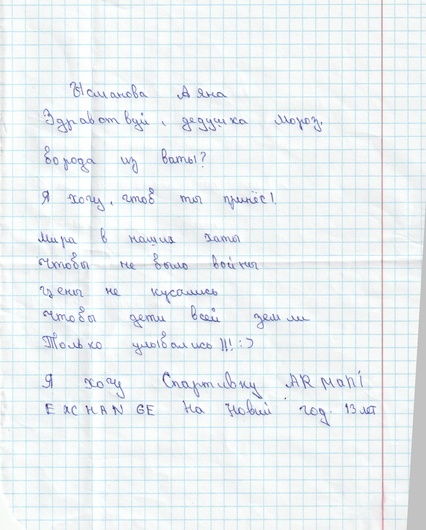 Усманова Аяна
Здравствуй, дедушка мороз,
борода из ваты?
Я хочу, чтоб ты принёс!
Мира в наших хаты
Чтобы не было войны
Цены не кусались
Чтобы дети всей земли
Только улыбались))! :)
Я хочу Спартивку ARmani
EXCHANGE На Новий год. 13 лет